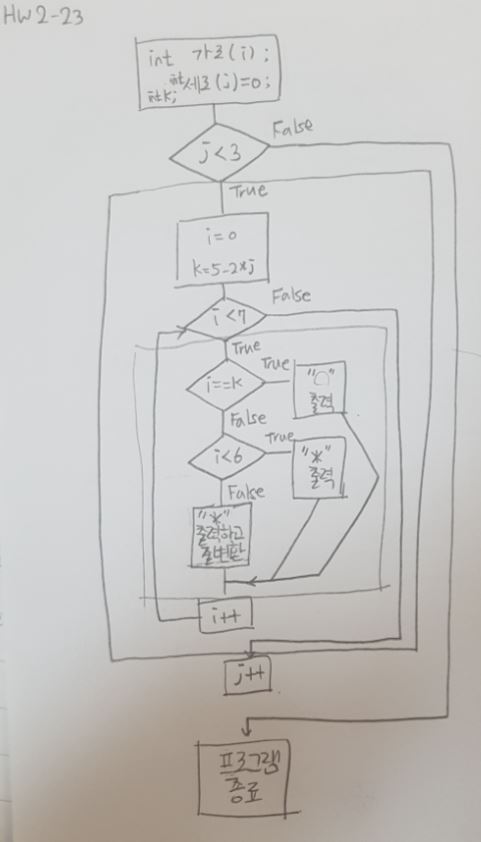 HW2-23
int 가로(i);
int세로(j)=0;
int k;
j<3
False
True
i=0
k=5-2*j
i<7
False
True
i==k
True
"□"
출력
False
i<6
True
"*"
출력
False
"*"
출력하고
줄변환
i++
j++
프로그램
종료